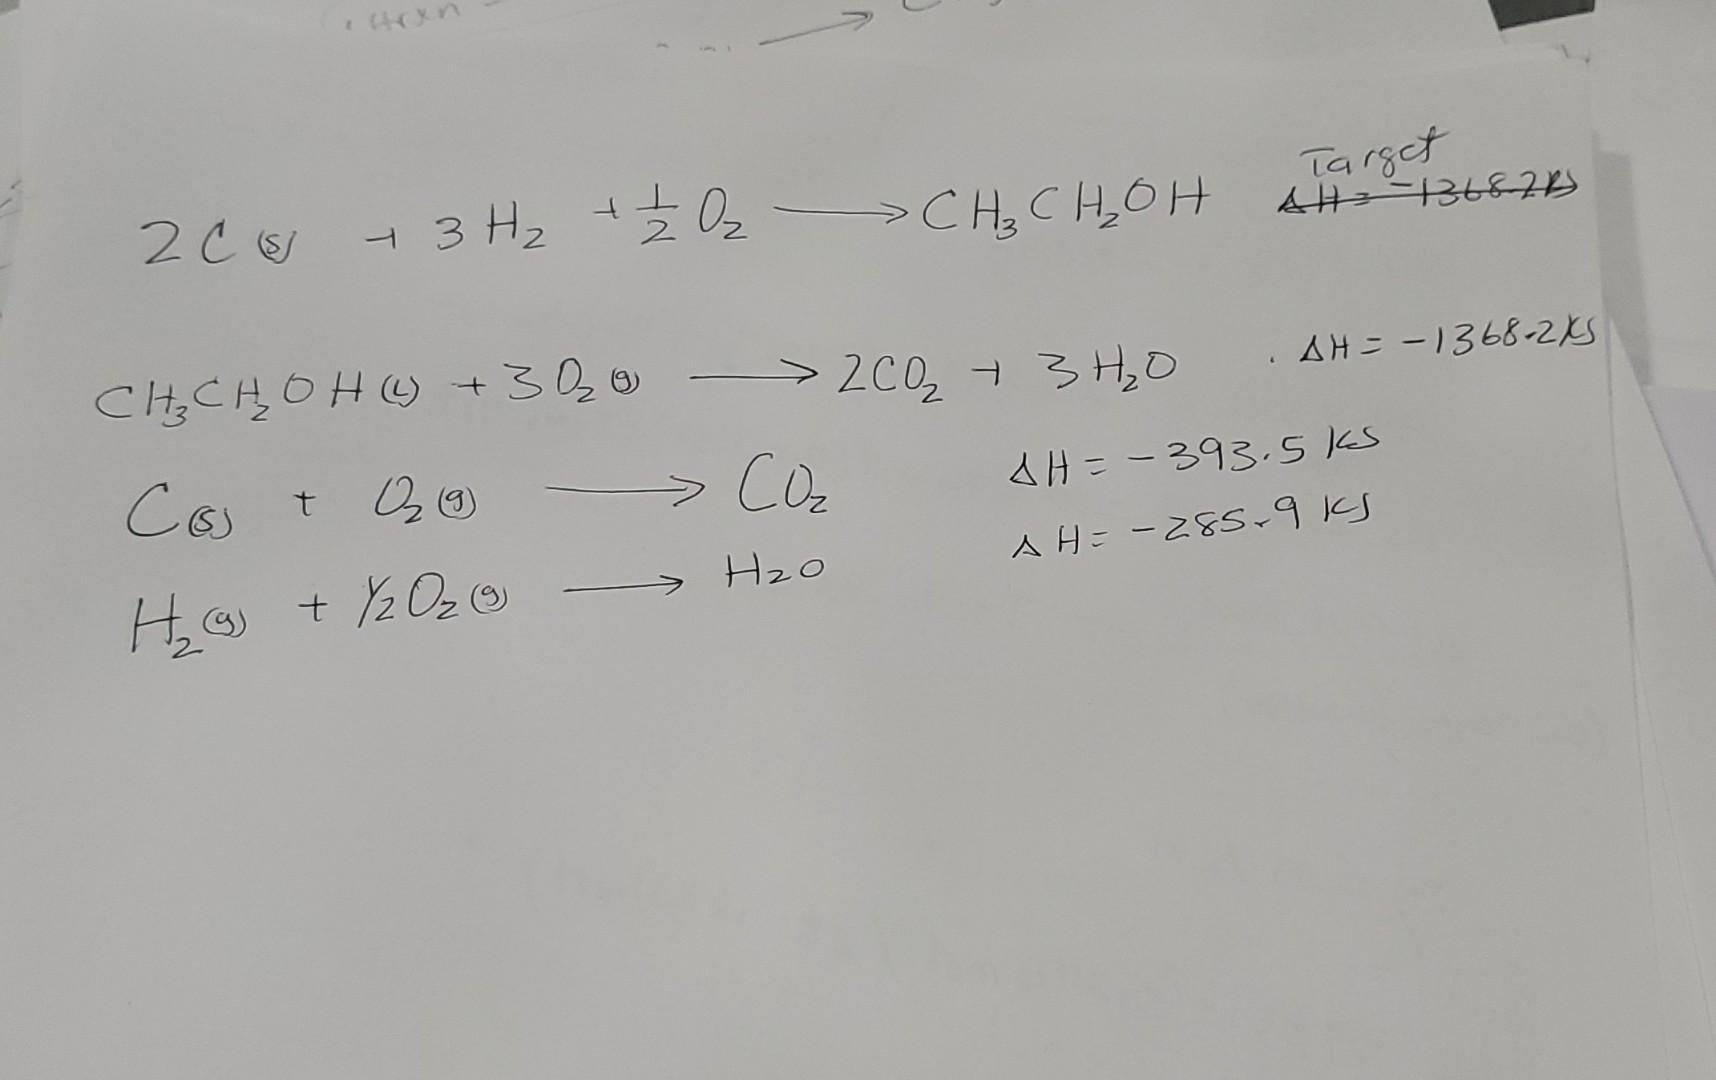 ΔHrxn
2C(s) + 3H₂ + ½ O₂ ⟶ CH₃CH₂OH Target
ΔH = -1368.2KJ
CH₃CH₂OH(L) + 3O₂(g) ⟶ 2CO₂ + 3H₂O . ΔH = -1368.2KJ
C(s) + O₂(g) ⟶ CO₂ ΔH = -393.5 KJ
H₂(g) + ½O₂(g) ⟶ H₂O ΔH = -285.9 KJ